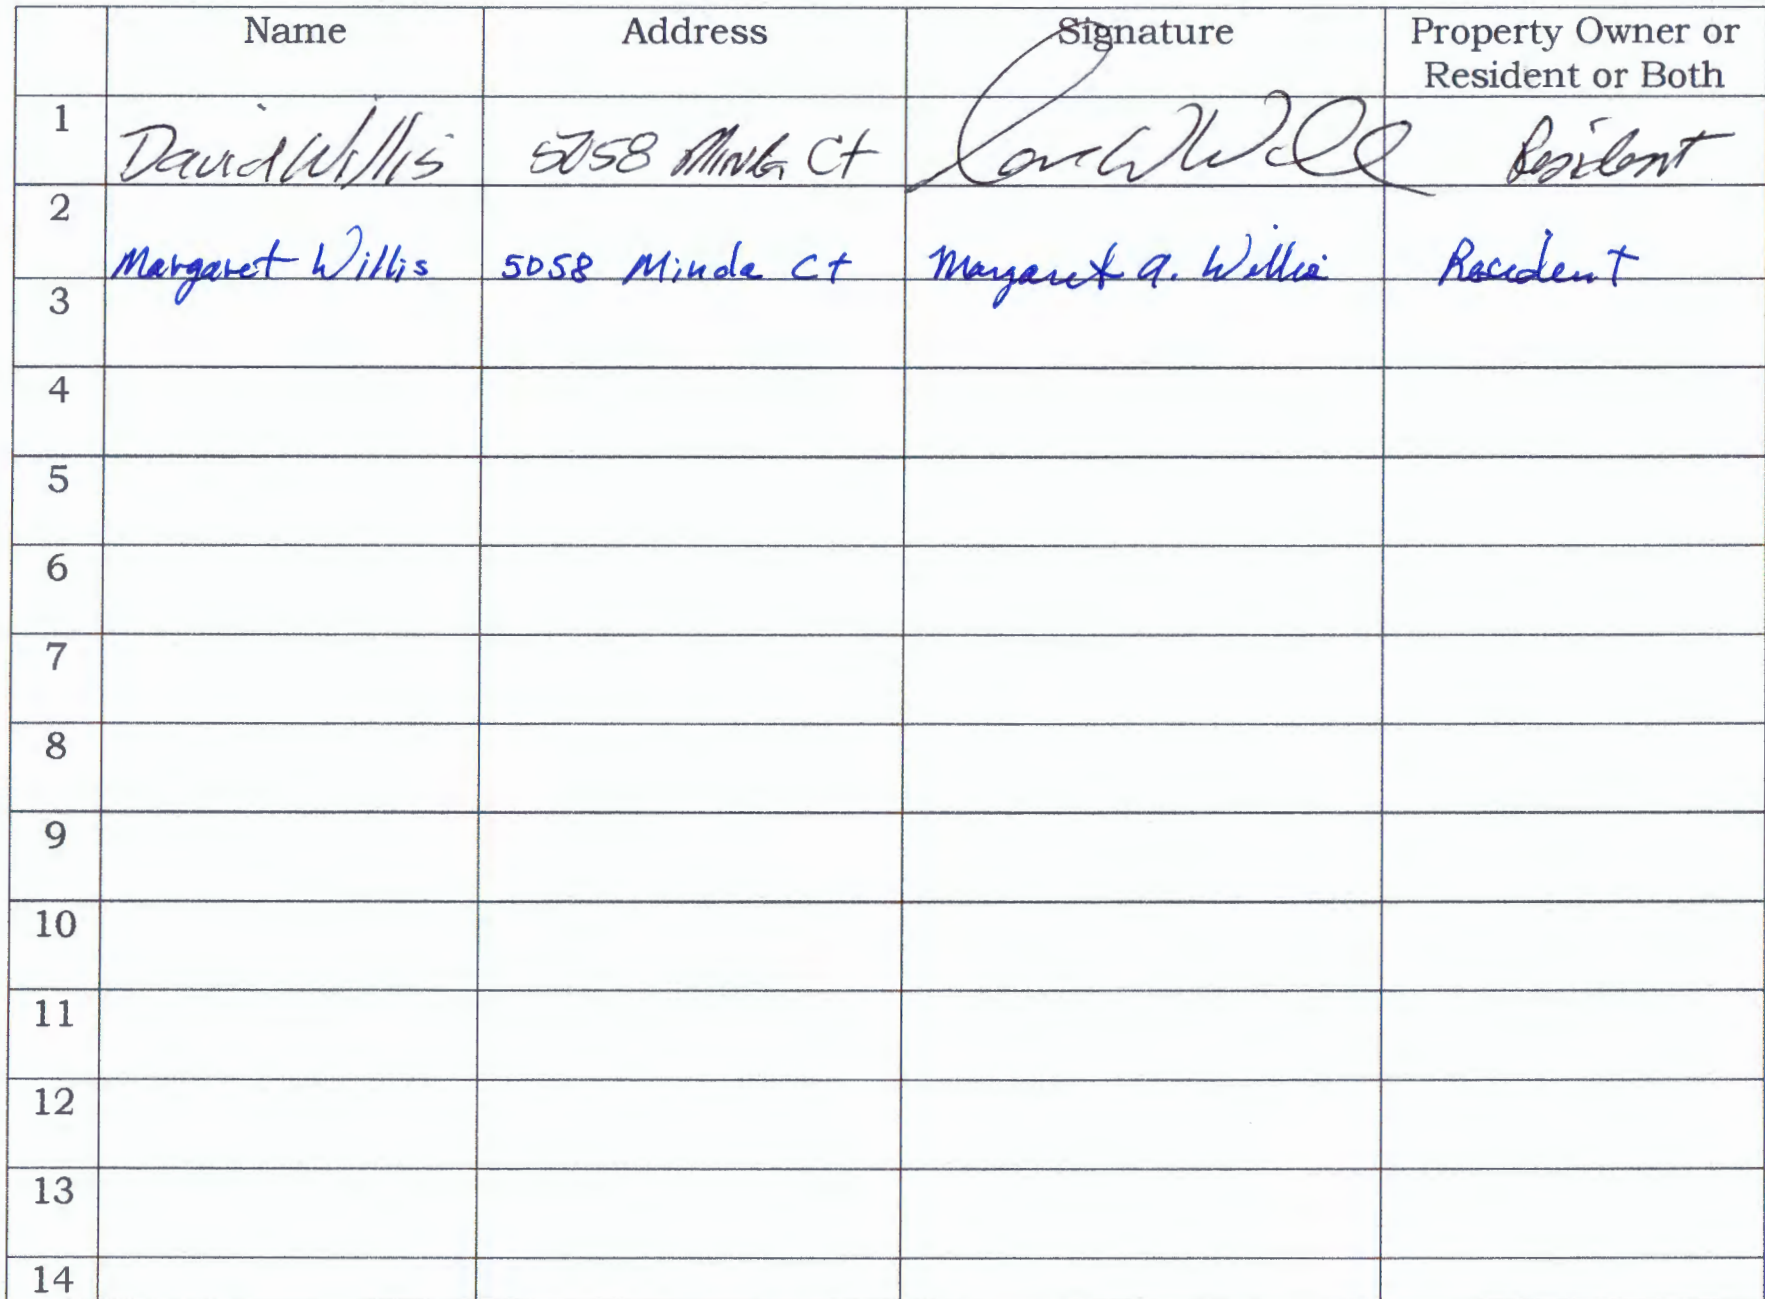 Name Address Signature Property Owner or
Resident or Both
1 David Willis 5058 Minda Ct Resident
2
Margaret Willis 5058 Minda Ct Margaret A. Willis Resident
3
4
5
6
7
8
9
10
11
12
13
14